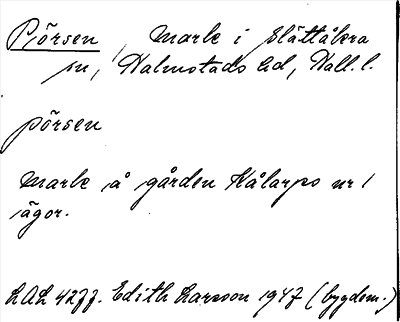 Pjörsen, Mark i Slättåkra
sn, Halmstads hd, Hall. l.
pörsen
Mark å gården Kålarps nr 1
ägor.
LAL 4277. Edith Larsson 1947 (bygdem.)